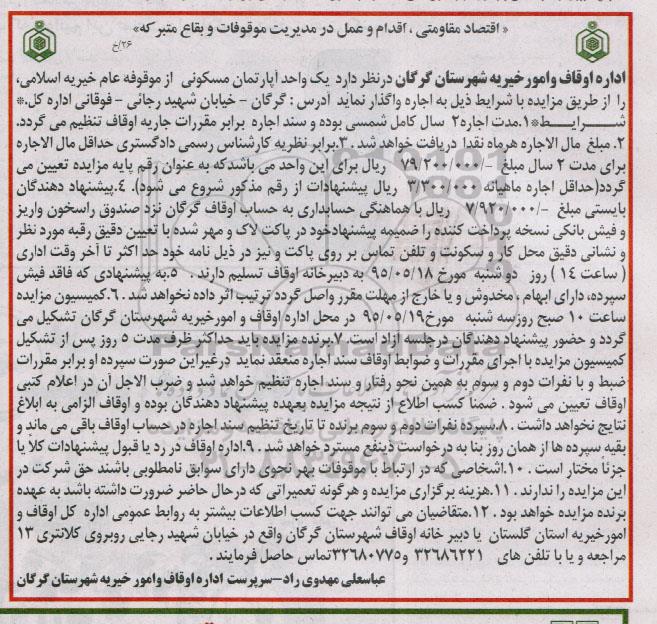 « اقتصاد مقاومتی ، اقدام و عمل در مدیریت موقوفات و بقاع متبرکه»
۲۶/خ
اداره اوقاف وامورخیریه شهرستان گرگان درنظر دارد یک واحد آپارتمان مسکونی از موقوفه عام خیریه اسلامی،
را از طریق مزایده با شرایط ذیل به اجاره واگذار نماید آدرس : گرگان – خیابان شهید رجائی – فوقانی اداره کل.*
شــرایــط*۱.مدت اجاره۲ سال کامل شمسی بوده و سند اجاره برابر مقررات جاریه اوقاف تنظیم می گردد.
۲. مبلغ مال الاجاره هرماه نقدا دریافت خواهد شد .۳.برابر نظریه کارشناس رسمی دادگستری حداقل مال الاجاره
برای مدت ۲ سال مبلغ -/۷۹/۲۰۰/۰۰۰ ریال برای این واحد می باشدکه به عنوان رقم پایه مزایده تعیین می
گردد(حداقل اجاره ماهیانه ۳/۳۰۰/۰۰۰ ریال پیشنهادات از رقم مذکور شروع می شود). ٤.پیشنهاد دهندگان
بایستی مبلغ -/۷/۹۲۰/۰۰۰ ریال با هماهنگی حسابداری به حساب اوقاف گرگان نزد صندوق راسخون واریز
و فیش بانکی نسخه پرداخت کننده را ضمیمه پیشنهادخود در پاکت لاک و مهر شده با تعیین دقیق رقبه مورد نظر
و نشانی دقیق محل کار و سکونت و تلفن تماس بر روی پاکت و نیز در ذیل نامه خود حد اکثر تا آخر وقت اداری
( ساعت ۱٤ ) روز دو شنبه مورخ ۹۵/۰۵/۱۸ به دبیرخانه اوقاف تسلیم دارند . ۵.به پیشنهادی که فاقد فیش
سپرده، دارای ابهام ، مخدوش و یا خارج از مهلت مقرر واصل گردد ترتیب اثر داده نخواهد شد . ٦.کمیسیون مزایده
ساعت ۱۰ صبح روزسه شنبه مورخ۹۵/۰۵/۱۹ در محل اداره اوقاف و امورخیریه شهرستان گرگان تشکیل می
گردد و حضور پیشنهاد دهندگان درجلسه آزاد است. ۷.برنده مزایده باید حداکثر ظرف مدت ۵ روز پس از تشکیل
کمیسیون مزایده با اجرای مقررات و ضوابط اوقاف سند اجاره منعقد نماید درغیر این صورت سپرده او برابر مقررات
ضبط و با نفرات دوم و سوم به همین نحو رفتار و سند اجاره تنظیم خواهد شد و ضرب الاجل آن در اعلام کتبی
اوقاف تعیین می شود . ضمنا کسب اطلاع از نتیجه مزایده بعهده پیشنهاد دهندگان بوده و اوقاف الزامی به ابلاغ
نتایج نخواهد داشت . ۸.سپرده نفرات دوم و سوم برنده تا تاریخ تنظیم سند اجاره در حساب اوقاف باقی می ماند و
بقیه سپرده ها از همان روز بنا به درخواست ذینفع مسترد خواهد شد . ۹.اداره اوقاف در رد یا قبول پیشنهادات کلا یا
جزئا مختار است . ۱۰.اشخاصی که در ارتباط با موقوفات بهر نحوی دارای سوابق نامطلوبی باشند حق شرکت در
این مزایده را ندارند . ۱۱.هزینه برگزاری مزایده و هرگونه تعمیراتی که درحال حاضر ضرورت داشته باشد به عهده
برنده مزایده خواهد بود . ۱۲.متقاضیان می توانند جهت کسب اطلاعات بیشتر به روابط عمومی اداره کل اوقاف و
امورخیریه استان گلستان یا دبیر خانه اوقاف شهرستان گرگان واقع در خیابان شهید رجایی روبروی کلانتری ۱۳
مراجعه و یا با تلفن های ۳۲٦۸٦۲۲۱ و۳۲٦۸۰۷۷۵تماس حاصل فرمایند .
عباسعلی مهدوی راد–سرپرست اداره اوقاف وامور خیریه شهرستان گرگان